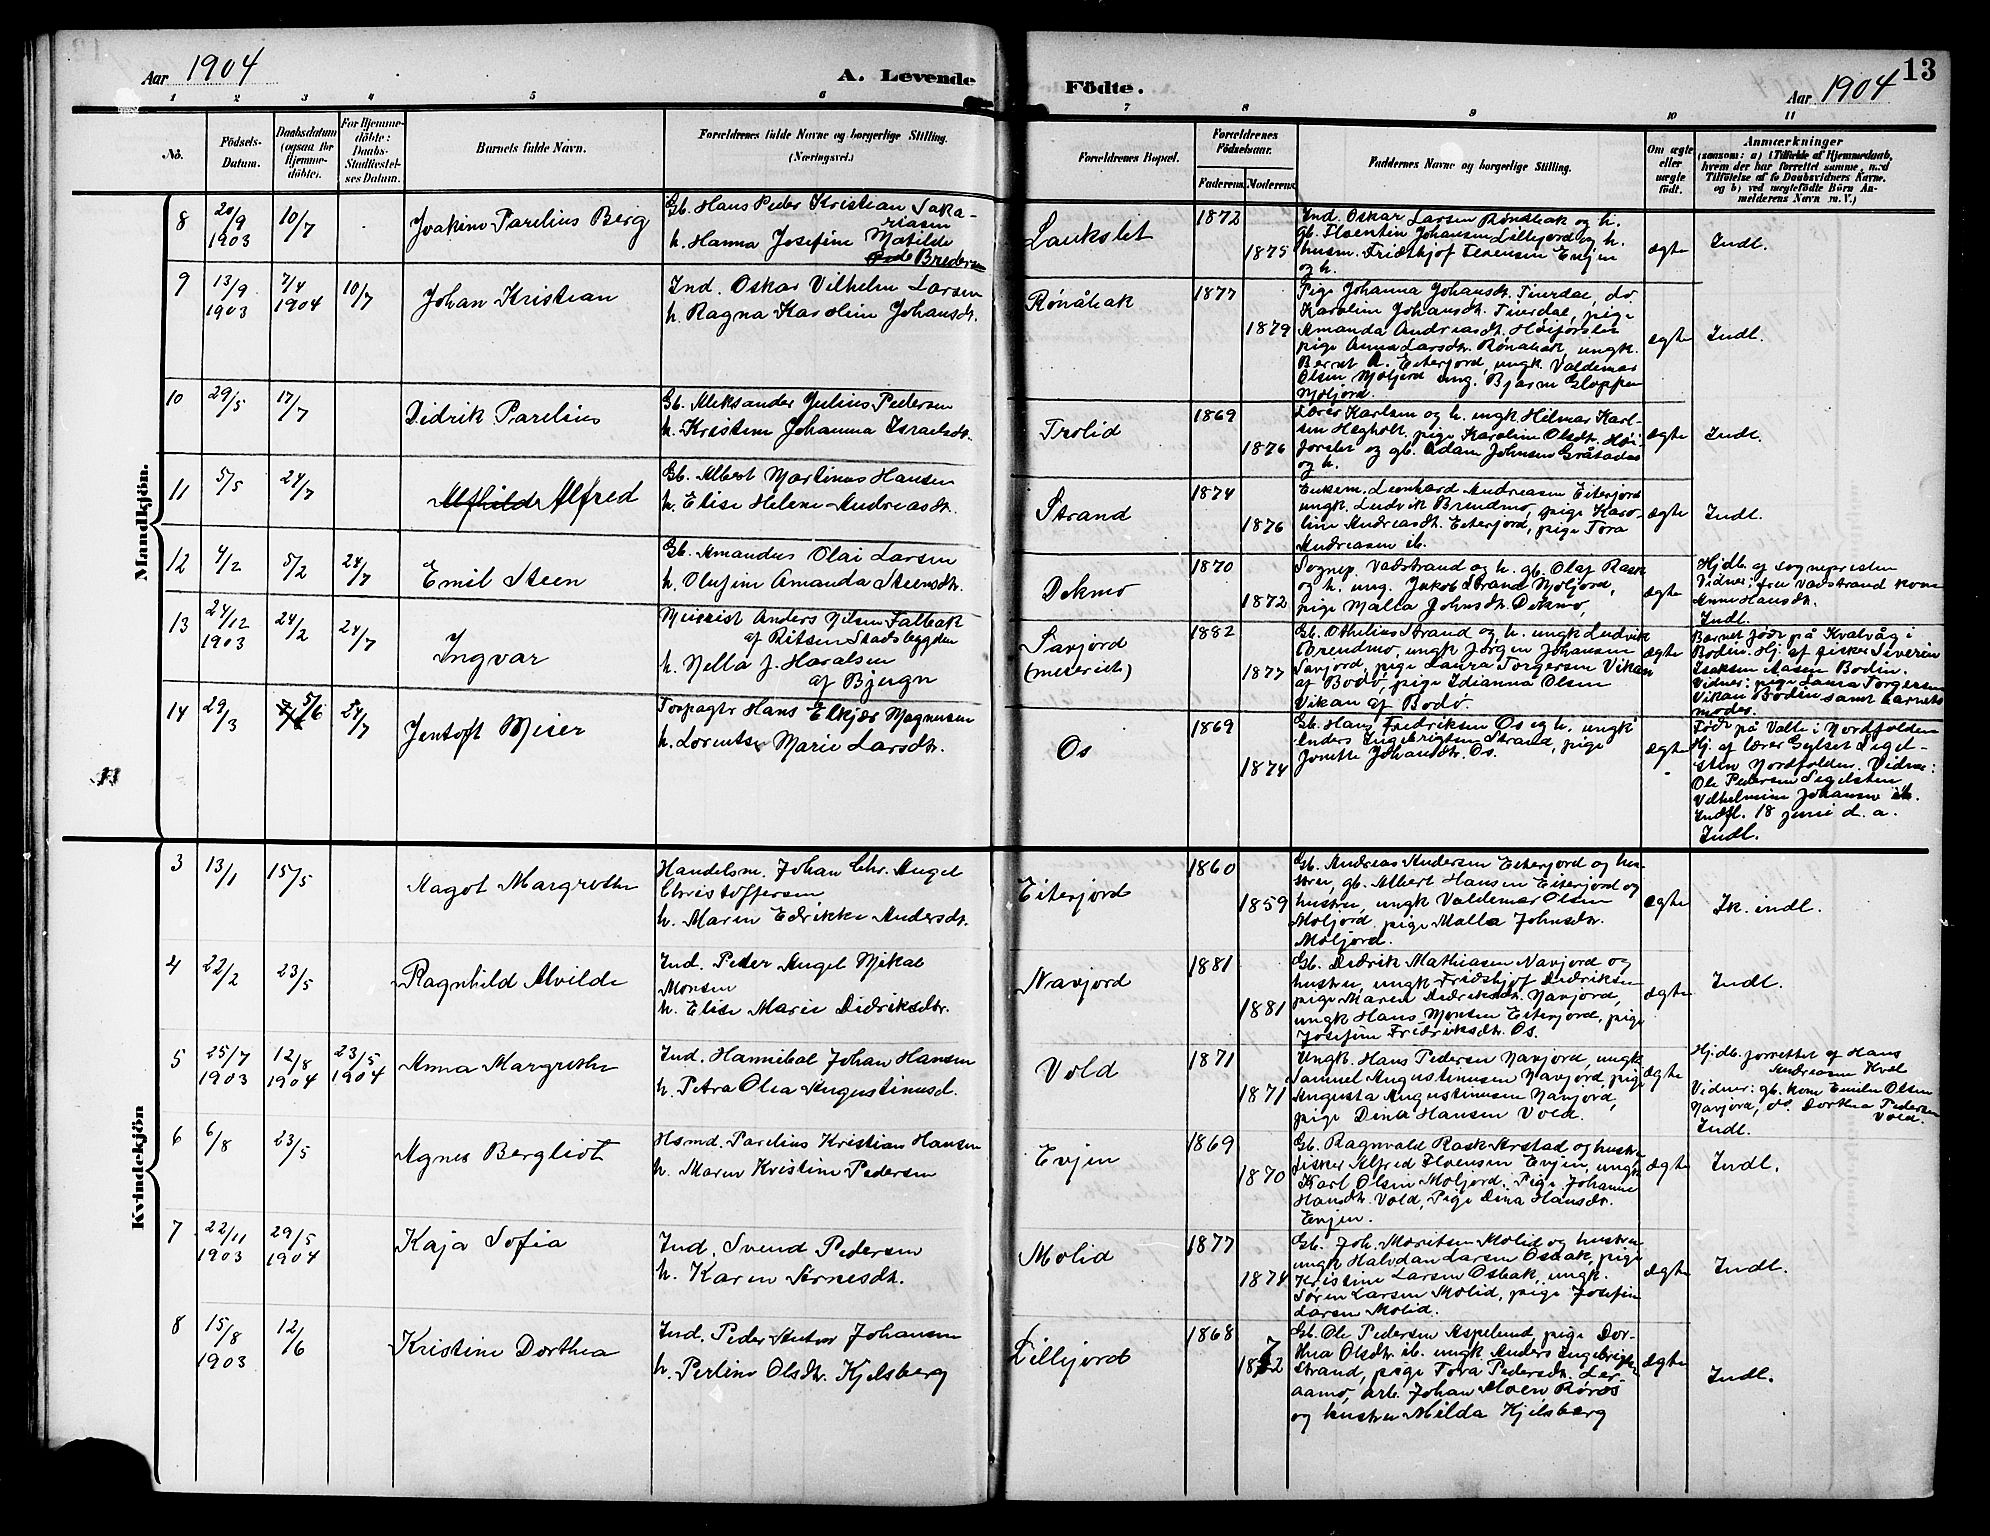 Aar 1904
A. Levende
Födte.
Aar 1904
13
1 2 3 4 5 6 7 8 9 10 11
No.
Födsels-Datum.
Daabsdatum (ogsaa for Hjemme-döbte).
For Hjemme-döbte: Daabs-Stadfæstel-ses Datum.
Barnets fulde Navn.
Forældrenes fulde Navne og borgerlige Stilling. (Næringsvei.)
Forældrenes Bopæl.
Forældrenes Födselsaar.
Faderens. Moderens.
Faddernes Navne og borgerlige Stilling.
Om ægte eller uægte födt.
Anmærkninger
(saasom: a) i Tilfælde af Hjemmedaab, hvem der har forrettet samme, med Tilföielse af to Daabsvidners Navne. og b) ved uægtefödte Börn An-melderens Navn m. V.)
Mandkjön.
8 20/9 1903 10/7
Joakino Parelius Berg
Gb. Hans Peder Kristian Saka-
riasen
h. Hanna Josefine Matilde
Bredersen
Laukslet
1872
1875
Ind. Oskar Larsen Rønåbak og h.
gb. Florentin Johansen Lillejord og h.
husm. Fridthjof Floensen Evjen
og h.
ægte
Indl.
9 13/9 1903 7/4 1904 10/7
Johan Kristian
Ind. Oskar Vilhelm Larsen
h. Ragna Karolin Johansdt.
Rønåbak
1877
1879
Pige Johanna Johansdt. Tverdal, do
Karolin Johansdt. Tverdal, pige
Amanda Andreasdt. Høiforslet
pige Anna Larsdt. Rønåbak, ungk.
Bernt A. Eiterjord, ungk. Valdemar
Olsen Moljord ung. Bjarne Gloppen
Moljord.
ægte
Indl.
10 29/5 17/7
Didrik Parelius
Gb. Aleksander Julius Pedersen
h. Kristine Johanna Israelsdt.
Trolid
1869
1876
Lærer Karlsen og h. ungk Hilmar Karl-
sen Hegholt, pige Karoline Olsdt. Høi-
forslet og gb. Adam Johnsen Gråtådas
og h.
ægte
Indl.
11 5/5 24/7
Alfhild Alfred
Gb. Albert Martinus Hansen
h. Elise Helene Andreasdt.
Strand
1874
1876
Enkem. Leonhard Andreasen Eiterjord
ungk. Ludvik Brendmo, pige Karo-
line Andreasdt. Eiterjord, pige Tora
Andreasen ib.
ægte
Indl.
12 4/2 5/2 24/7
Emil Steen
Gb. Amandus Olai Larsen
h. Olufine Amanda Steensdt.
Dokmo
1870
1872
Sognep. Vadstrand og h. gb. Olaf Rask
og h. ung. Jakob Strand Moljord,
pige Malla Johnsdt. Dokmo
ægte
Hjdb. af sognepresten
Vidner: fru Vadstrand kone
Anne Hansdt.
Indl.
13 24/12 1903 24/2 24/7
Ingvar
Meierist Anders Nilsen Falbak
af Ritsen Stadsbygden
h. Nella J. Haralsen
af Bjugn
Savjord
(meieriet)
1882
1877
Gb. Othelius Strand og h. ungk Ludvik
Brendmo, ungk Jørgen Johansen
Savjord, pige Laura Torgersen Vikan
af Bodø, pige Idianna Olsen
Vikan af Bodø.
ægte
Barnet født på Kvalvåg i
Bodin. Hj. af fisker Severin
Isaksen Aasen Bodin.
Vidner: pige Laura Torgersen
Vikan Bodin samt barnets
moder.
14 29/3 5/6 24/7
Jentoft Meier
Forpagtr Hans Elkjær Magnusen
h. Lorentse Marie Larsdt.
Os
1869
1874
Gb. Hans Fredriksen Os og h. ungk
Anders Ingebrigtsen Strand, pige
Jonette Johansdt. Os.
ægte
Født på Valle i Nordfolden
Hj. af lærer Gylset Segel-
sten Nordfolden. Vidner:
Ole Pedersen Segelsten
Vilhelmine Johansen ib.
Indfl. 18 juni d. a.
Indl.
Kvindekjön
3 13/1 15/5
Aagot Margrethe
Handelsm. Johan Chr. Angel
Christoffersen
h. Maren Edrikke Andersdt.
Eiterjord
1860
1859
Gb. Andreas Andersen Eiterjord og hu-
stru, gb. Albert Hansen Eiterjord og
hustru, ungk Valdemar Olsen
Moljord, pige Malla Johnsdtr.
Moljord.
ægte
Ik. indl.
4 22/2 23/5
Ragnhild Alvilde
Ind. Peder Angel Mikal
Monsen
h. Elise Marie Didriksdtr.
Navjord
1881
1881
Gb. Didrik Mathiasen Navjord og
hustru, ungk Fridthjof Didriksen
pige Maren Didriksdt. Navjord,
ungk Hans Monsen Eiterjord, pige
Josefine Fredriksdt. Os.
ægte
Indl.
5 25/7 1903 12/8 1904 23/5 1904
Anna Margrethe
Ind. Hannibal Johan Hansen
h. Petra Olea Augustinusd.
Vold
1871
1871
Ungk. Hans Pedersen Navjord, ungk
Samuel Augustinusen Navjord, pige
Augusta Augustinusen Navjord,
pige Dina Hansen Vold.
ægte
Hjdb. forrettet af Hans
Andreasen Kvæl
Vidner: gb. kone Emilie Olsen
Navjord, do. Dorthea Pedersen
Vold.
Indl.
6 6/8 23/5
Agnes Bergliot
Hsmd. Parelius Kristian Hansen
h. Maren Kristine Pedersen
Evjen
1869
1870
Gb. Ragnvald Rask Arstad og hustru
fisker Alfred Floensen Evjen, ungk
Karl Olsen Moljord. Pige Johanne
Hansdt. Vold, Pige Dina Hansdtr.
Evjen.
ægte
Indl.
7 22/11 1903 29/5 1904
Kaja Sofia
Ind. Svend Pedersen
h. Karen Sørnesdt.
Molid
1877
1874
Gb. Joh. Moritsen Molid og hustru
ungk Halvdan Larsen Osbak, pige
Kristine Larsen Osbak, ungk.
Søren Larsen Molid, pige Josefine
Larsen Molid.
ægte
Indl.
8 15/8 1903 12/6
Kristine Dorthea
Ind. Peder Anton Johansen
h. Perline Olsdt. Kjelsberg
Lillejord
1868
1872
Gb. Ole Pedersen Aspelund, pige Dor-
thea Olsdt. ib. ungk. Anders Ingebrigts.
Strand, pige Tora Pedersdt. Ler-
aamo, arb. Johan Moen Røros
og hustru Milda Kjelsberg
ægte
Indl.